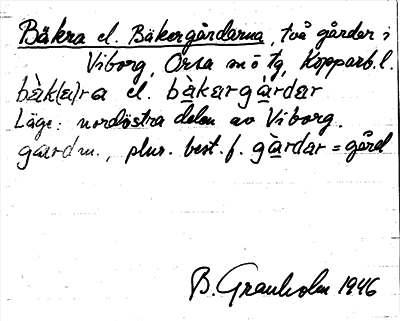 Bäkra el. Bäkergårdarna, två gårdar i
Viborg, Orsa sn o tg, Kopparb.l.
bàk(a)ra el. bàkergårdar
Läge: nordöstra delen av Viborg.
gårdn., plur. best. f. gårdar = gård
B. Granholm 1946